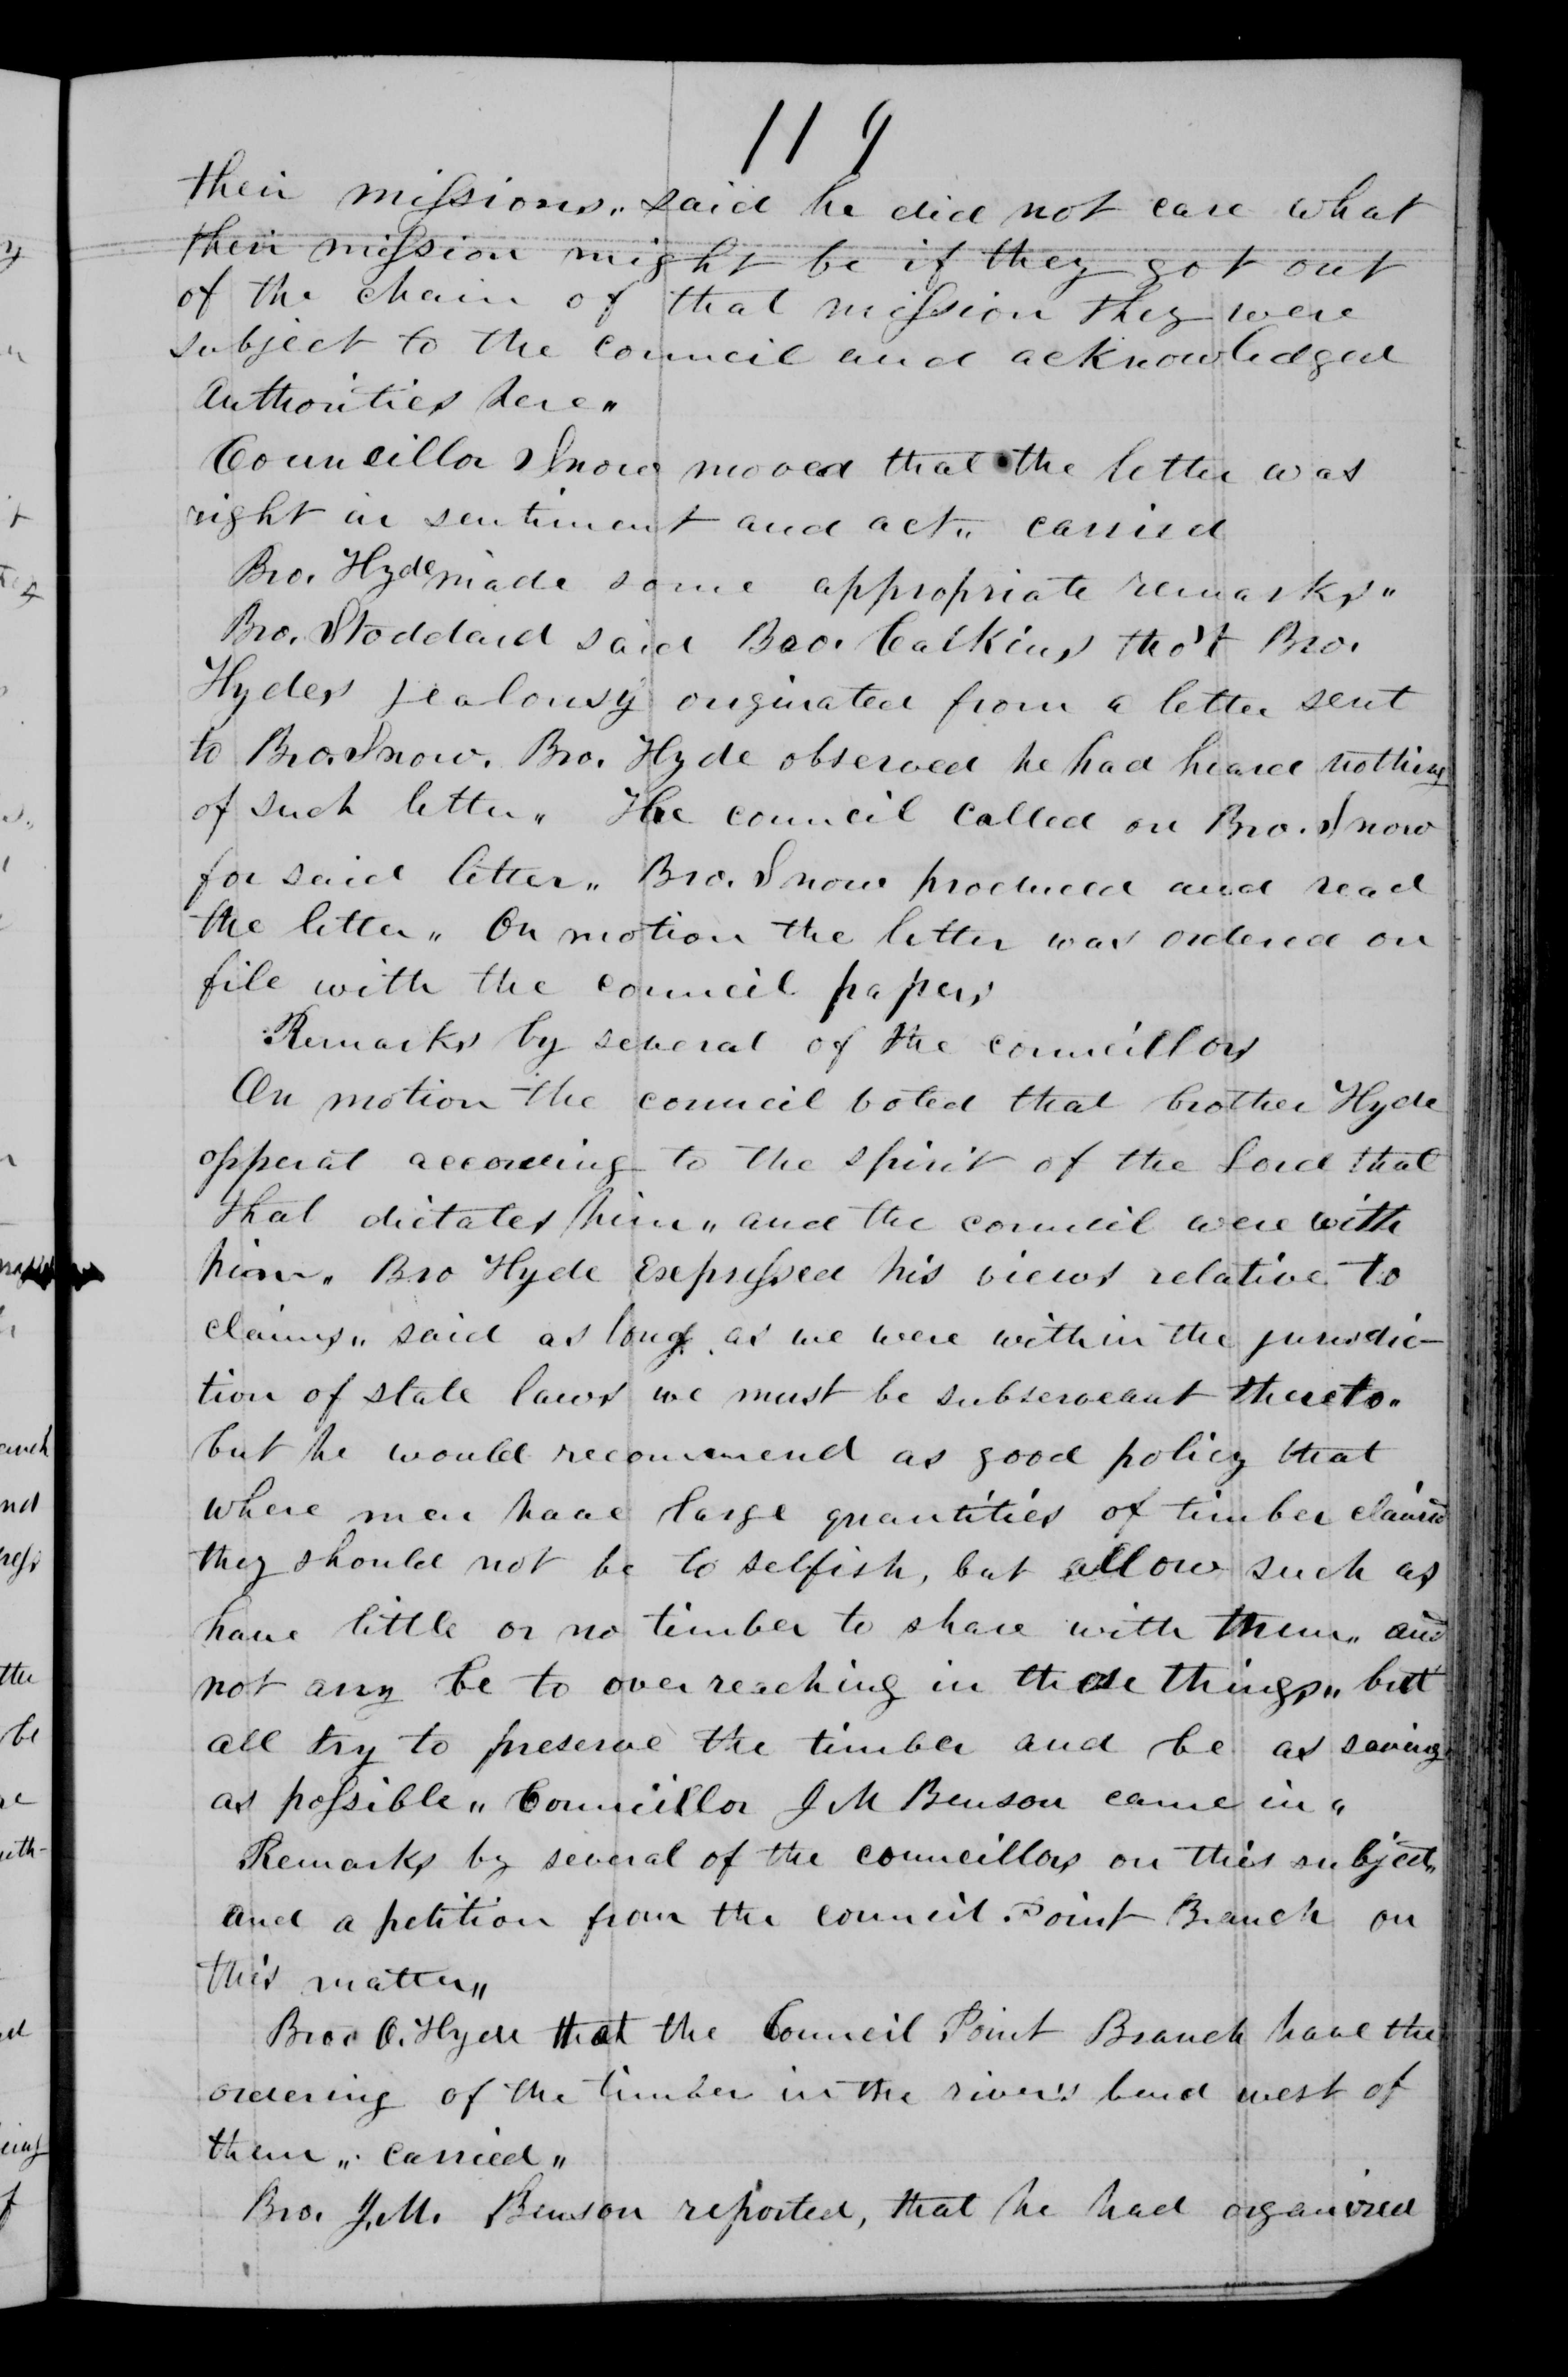 119
their missions„ said he did not care what
their mission might be if they got out
of the chain of that mission they were
subject to the council and acknowledged
Authorities here„
Councillor Snow moved that the letter was
right in sentiment and act„ carried
Bro. Hyde made some appropriate remarks„
Bro. Stoddard said Bro. Calkins tho't Bro.
Hydes jealousy originated from a letter sent
to Bro. Snow. Bro. Hyde observed he had heard nothing
of such letter„ The council called on Bro. Snow
for said letter„ Bro. Snow produced and read
the letter„ On motion the letter was ordered on
file with the council papers
Remarks by several of the councillors
On motion the council voted that brother Hyde
opperat according to the spirit of the Lord that
that dictates him„ and the council were with
him„ Bro Hyde Expressed his views relative to
claims„ said as long as we were within the jurisdic-
tion of state laws we must be subserveant thereto„
but he would recommend as good policy that
where men have large quantities of timber claimd
they should not be to selfish, but allow such as
have little or no timber to share with them„ and
not any be to over reaching in these things„ but
all try to preserve the timber and be as saving
as possible„ Councillor J M Benson came in„
Remarks by several of the councillors on this subject„
and a petition from the council Point Branch on
this matter„
Bro. O. Hyde that the Council Point Branch have the
ordering of the timber in the river's bend west of
them„ carried„
Bro. J. M. Benson reported, that he had organized